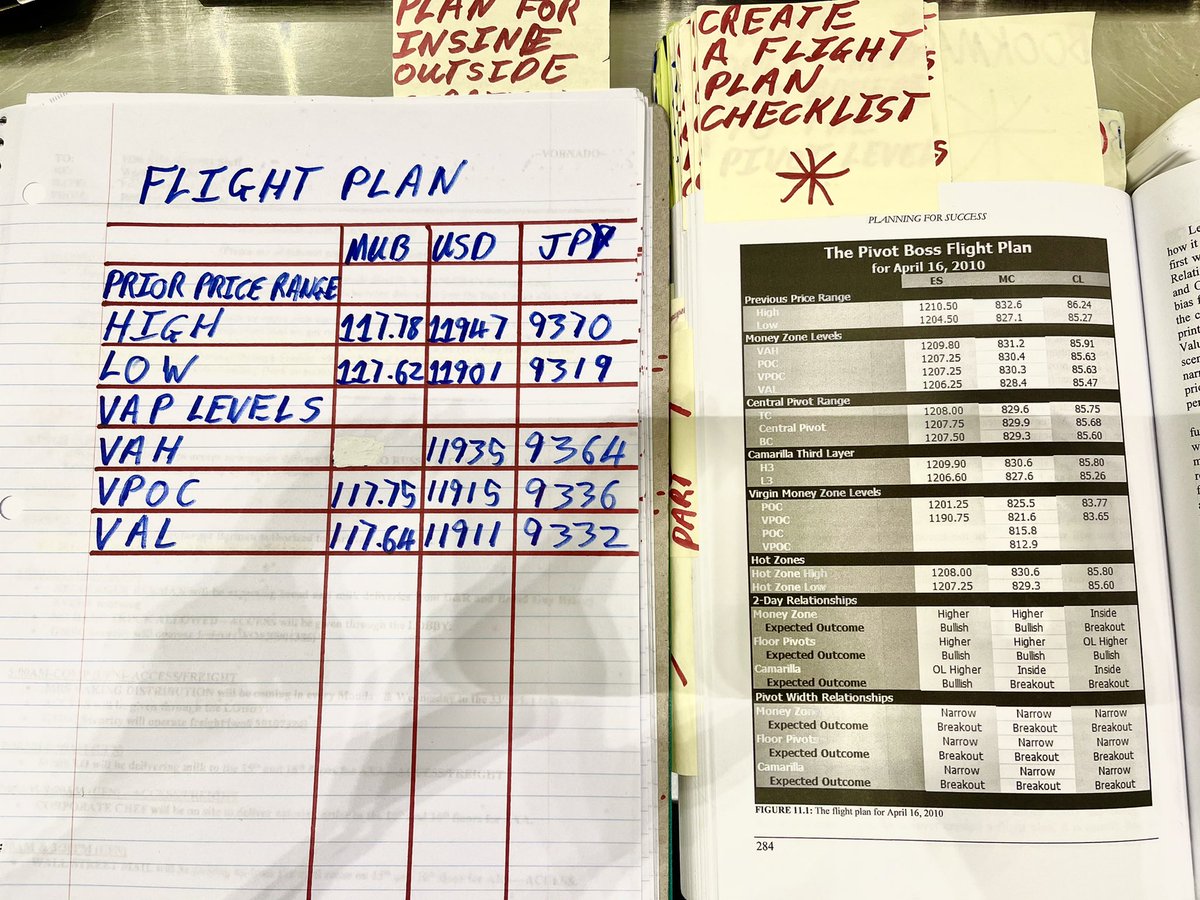 PLAN FOR
INSINE
OUTSIDE
CREATE
A FLIGHT
PLAN
CHECKLIST
FLIGHT PLAN
MUB USD JPY
PRIOR PRICE RANGE
HIGH 117.78 11947 9370
LOW 117.62 11901 9319
VAP LEVELS
VAH 11935 9364
VPOC 117.75 11915 9336
VAL 117.64 11911 9332
PART 1
PLANNING FOR SUCCESS
The Pivot Boss Flight Plan
for April 16, 2010
ES MC CL
Previous Price Range
High 1210.50 832.6 86.24
Low 1204.50 827.1 85.27
Money Zone Levels
VAH 1209.80 831.2 85.91
POC 1207.25 830.4 85.63
VPOC 1207.25 830.3 85.63
VAL 1206.25 828.4 85.47
Central Pivot Range
TC 1208.00 829.6 85.75
Central Pivot 1207.75 829.9 85.68
BC 1207.50 829.3 85.60
Camarilla Third Layer
H3 1209.90 830.6 85.80
L3 1206.60 827.6 85.26
Virgin Money Zone Levels
POC 1201.25 825.5 83.77
VPOC 1190.75 821.6 83.65
POC 815.8
VPOC 812.9
Hot Zones
Hot Zone High 1208.00 830.6 85.80
Hot Zone Low 1207.25 829.3 85.60
2-Day Relationships
Money Zone Higher Higher Inside
Expected Outcome Bullish Bullish Breakout
Floor Pivots Higher Higher OL Higher
Expected Outcome Bullish Bullish Bullish
Camarilla OL Higher Inside Inside
Expected Outcome Bullish Breakout Breakout
Pivot Width Relationships
Money Zone Narrow Narrow Narrow
Expected Outcome Breakout Breakout Breakout
Floor Pivots Narrow Narrow Narrow
Expected Outcome Breakout Breakout Breakout
Camarilla Narrow Narrow Narrow
Expected Outcome Breakout Breakout Breakout
FIGURE 11.1: The flight plan for April 16, 2010
284